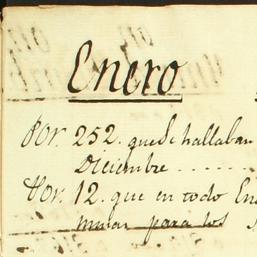 Enero
Por. 252. que se hallaban
Diciembre . . . . . .
Por. 12. que en todo Ene
minar para los